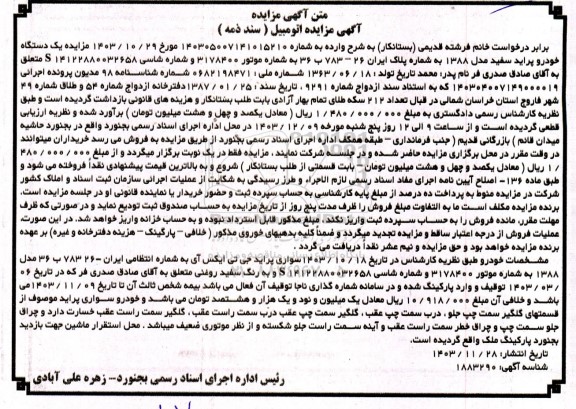 متن آگهی مزایده
آگهی مزایده اتومبیل ( سند ذمه )
برابر درخواست خانم فرشته قدیمی (بستانکار) به شرح وارده به شماره 140305007141015210 مورخ 29 / 10 / 1403 مزایده یک دستگاه
خودرو پراید سفید مدل 1388 به شماره پلاک ایران 26 – 783 ب 36 به شماره موتور 3178400 و شماره شاسی S 1412288032658 متعلق
به آقای صادق صدری فر نام پدر: محمد تاریخ تولد : 18 / 06 / 1363 شماره ملی : 0682198471 شماره شناسنامه 98 مدیون پرونده اجرایی
140304007149000019 که به استناد سند ازدواج شماره 9291 ، تاریخ سند : 25 / 01 / 1387 دفترخانه ازدواج شماره 54 و طلاق شماره 49
شهر فاروج استان خراسان شمالی در قبال تعداد 212 سکه طلای تمام بهار آزادی بابت طلب بستانکار و هزینه های قانونی بازداشت گردیده است و طبق
نظریه کارشناس رسمی دادگستری به مبلغ 000 / 000 / 480 / 1 ریال ( معادل یکصد و چهل و هشت میلیون تومان ) برآورد شده و نظریه ارزیابی
قطعی گردیده است و از ساعت 9 الی 12 روز پنج شنبه مورخه 09 / 12 / 1403 در محل اداره اجرای اسناد رسمی بجنورد واقع در بجنورد حاشیه
میدان قائم ) بازرگانی قدیم ( جنب فرمانداری – طبقه همکف اداره اجرای اسناد رسمی بجنورد از طریق مزایده به فروش می رسد خریداران میتوانند
در وقت مقرر در محل برگزاری مزایده حاضر شده و در جلسه شرکت نمایند. مزایده فقط در یک نوبت برگزار میگردد و از مبلغ 000 / 000 / 480
/ 1 ریال ( معادل یکصد و چهل و هشت میلیون تومان – بابت قسمتی از طلب بستانکار ) شروع و به بالاترین قیمت پیشنهادی نقداً فروخته می شود و
طبق ماده 136 – اصلاح آیین نامه اجرای مفاد اسناد رسمی لازم الاجراء و طرز رسیدگی به شکایت از عملیات اجرایی سازمان ثبت اسناد و املاک کشور
شرکت در مزایده منوط به پرداخت ده درصد از مبلغ پایه کارشناسی به حساب سپرده ثبت و حضور خریدار یا نماینده قانونی او در جلسه مزایده است.
برنده مزایده مکلف است ما به التفاوت مبلغ فروش را ظرف مدت پنج روز از تاریخ مزایده به حساب صندوق ثبت تودیع نماید و در صورتی که ظرف
مهلت مقرر، مانده فروش را به حساب سپرده ثبت واریز نکند، مبلغ مذکور قابل استرداد نبوده و به حساب خزانه واریز خواهد شد. در این صورت،
عملیات فروش از درجه اعتبار ساقط و مزایده تجدید میگردد و ضمناً کلیه بدهیهای خودروی مذکور ( خلافی – پارکینگ – هزینه دفترخانه و غیره) بر عهده
برنده مزایده خواهد بود و حق مزایده و نیم عشر نقداً دریافت می گردد .
مشخصات خودرو طبق نظریه کارشناس در تاریخ 18 / 10 / 1403 سواری پراید جی تی ایکس آی به شماره انتظامی ایران -26 783 ب 36 مدل
1388 به شماره موتور 3178400 و شماره شاسی S 1412288032658 به رنگ سفید روغنی متعلق به آقای صادق صدری فر که در تاریخ 06
/ 03 / 1403 توقیف و وارد پارکینگ شده و در سامانه شماره گذاری ناجا توقیف آن فعال می باشد بیمه شخص ثالث آن تا تاریخ 09 / 11 / 1403 می
باشد و خلافی آن مبلغ 000 / 918 / 10 ریال معادل یک میلیون و نود و یک هزار و هشتصد تومان می باشد و خودرو سواری پراید موصوف از
قسمتهای گلگیر سمت چپ جلو ، درب سمت چپ عقب ، گلگیر سمت چپ عقب درب سمت راست عقب ، گلگیر سمت راست عقب خسارت دارد و چراغ
جلو سمت چپ و چراق خطر سمت راست عقب و آینه سمت راست جلو شکسته و از نظر موتوری ضعیف میباشد . محل استقرار ماشین جهت بازدید
بجنورد پارکینگ ملک واقع گردیده است.
تاریخ انتشار: 28 / 11 / 1403
شناسه آگهی: 1883290
رئیس اداره اجرای اسناد رسمی بجنورد- زهره علی آبادی